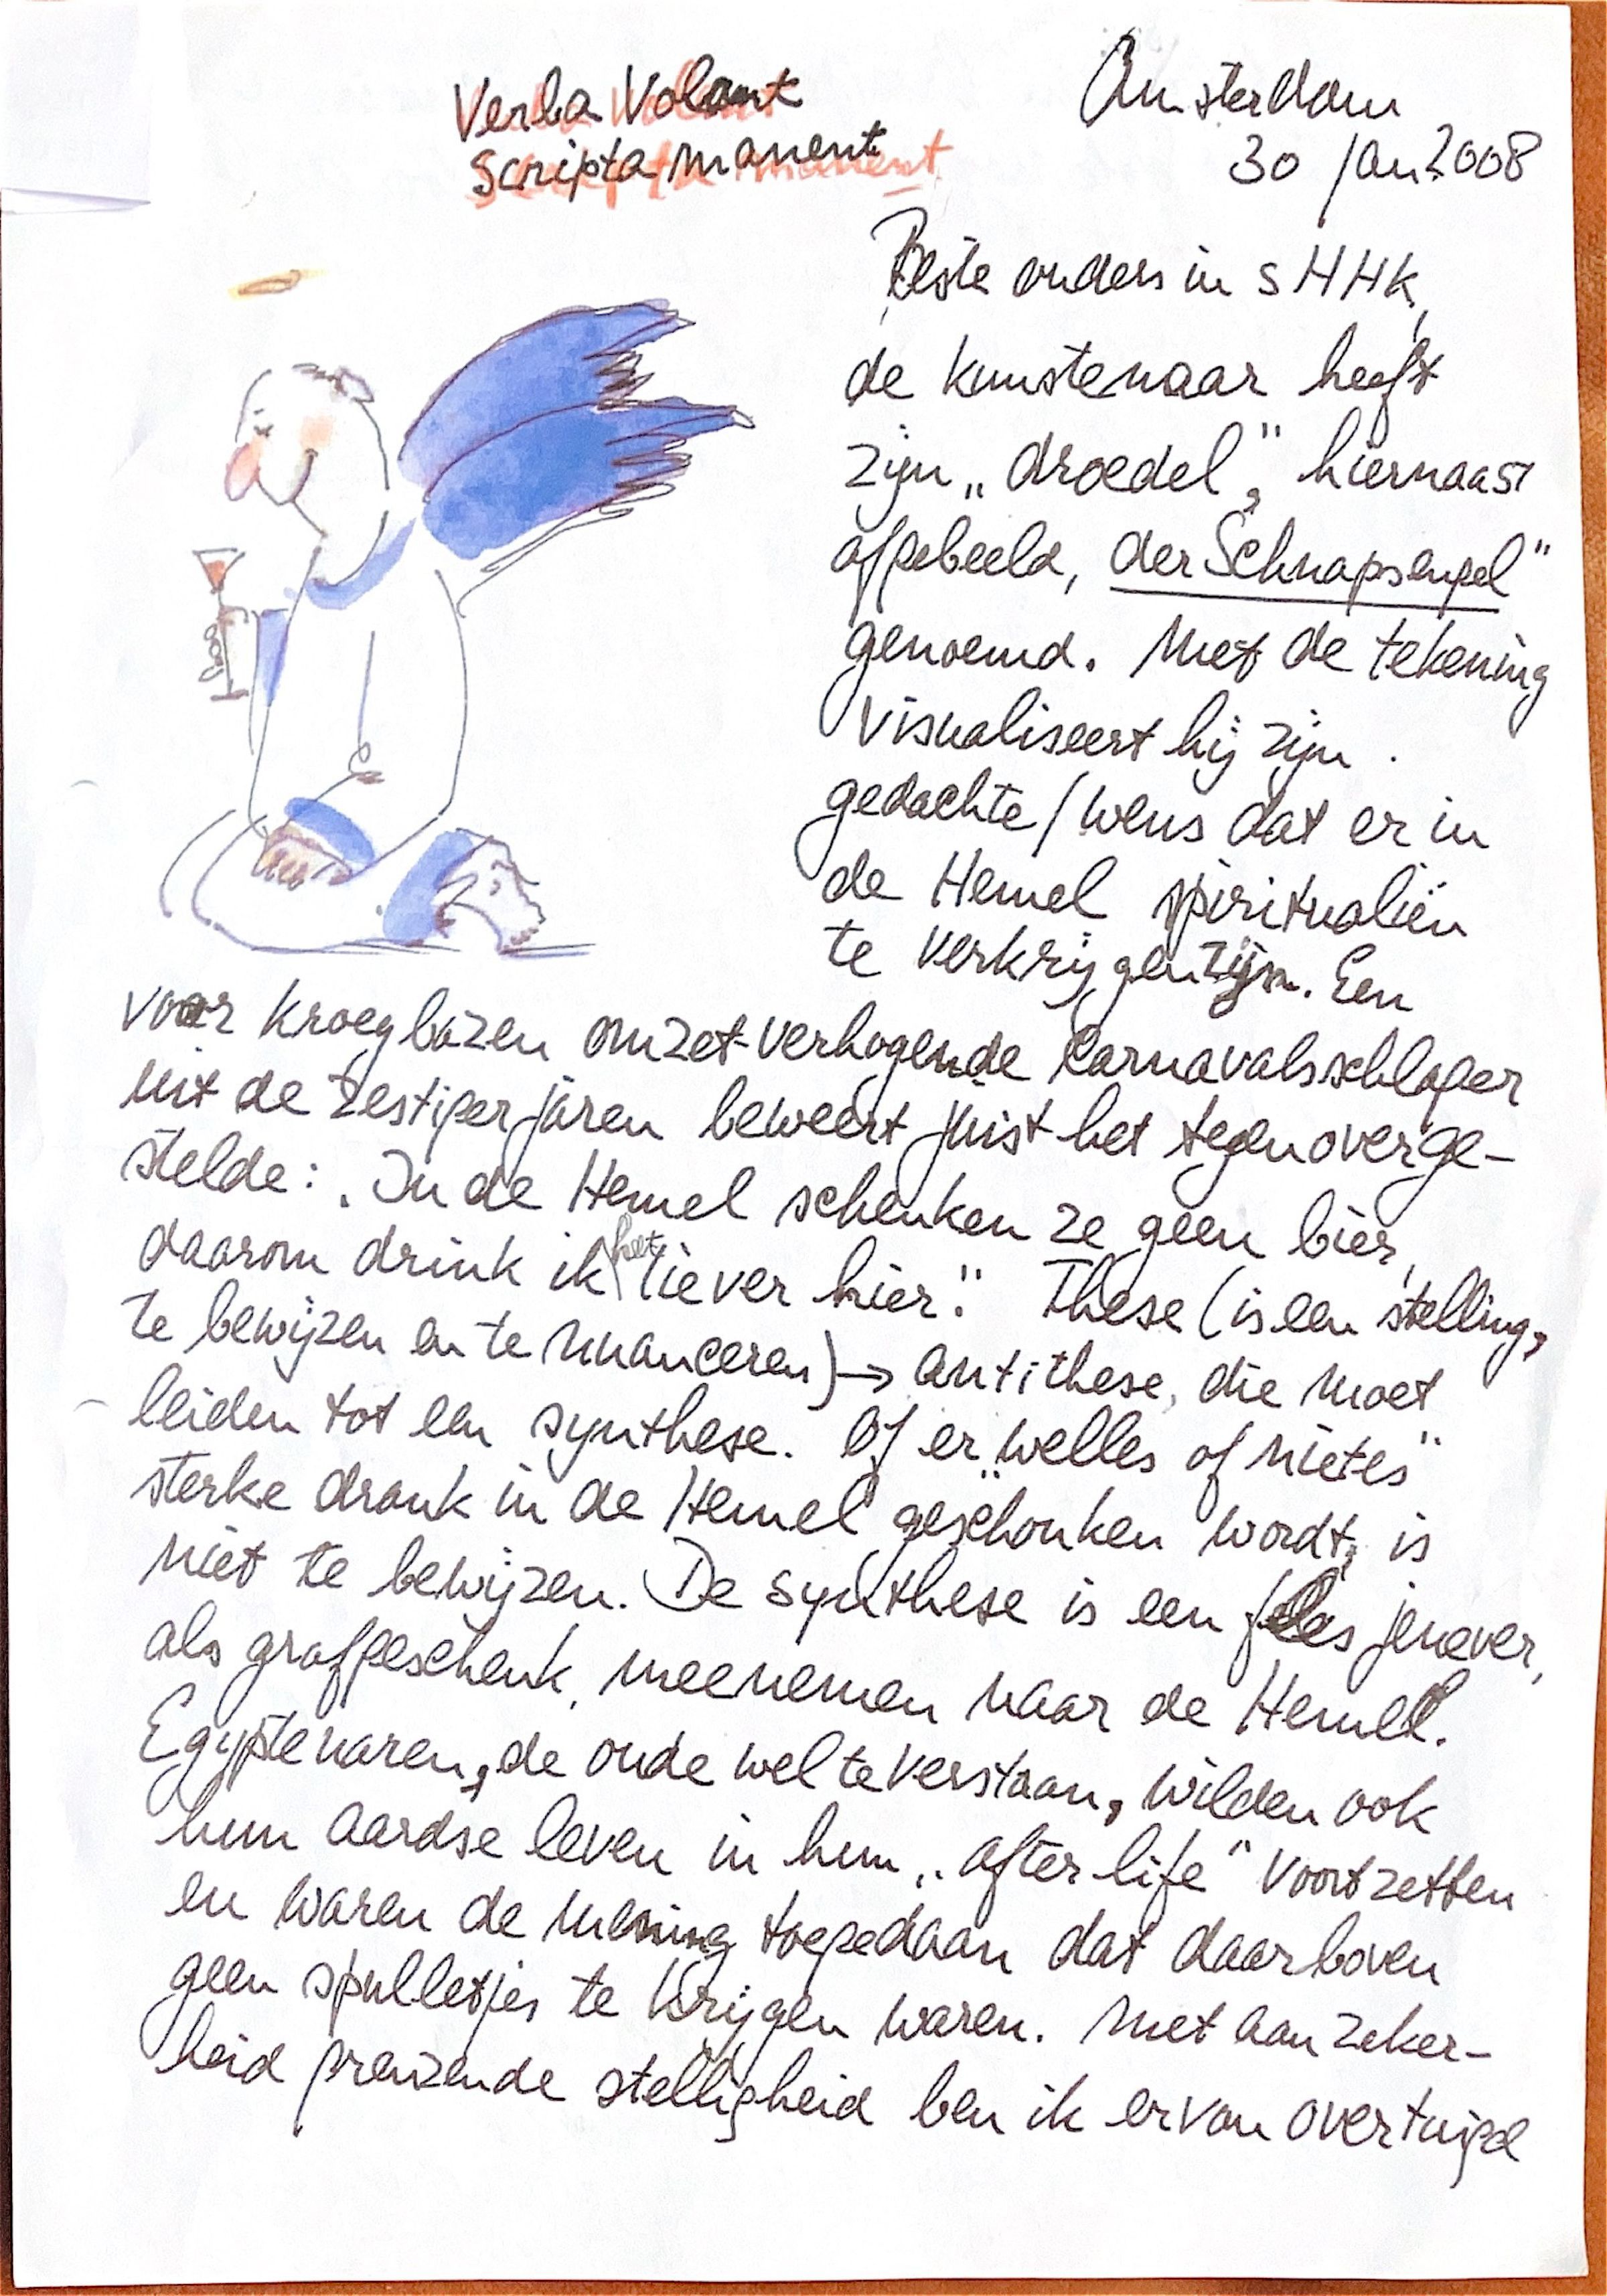 Verba Volant
Scripta manent
Amsterdam
30 Jan 2008
Beste ouders in sHHk,
de kunstenaar heeft
zijn „droedel”, hiernaast
afgebeeld, der Schnapsengel"
genoemd. Met de tekening
visualiseert hij zijn
gedachte/wens dat er in
de Hemel spiritualiën
te verkrijgen zijn. Een
voor kroegbazen omzet-verhogende Carnavalsschlager
uit de zestiger jaren beweert juist het tegenoverge-
stelde: „In de Hemel schenken ze geen bier,
daarom drink ik het liever hier". These (is een stelling,
te bewijzen en te nuanceren) → antithese, die moet
leiden tot een synthese. Of er „welles of nietes"
sterke drank in de Hemel geschonken wordt, is
niet te bewijzen. De synthese is een fles jenever,
als grafgeschenk, meenemen naar de Hemel.
Egyptenaren, de oude wel te verstaan, wilden ook
hun aardse leven in hun „after life" voortzetten
en waren de mening toegedaan dat daarboven
geen spulletjes te krijgen waren. Met aan zeker-
heid grenzende stelligheid ben ik ervan overtuigd